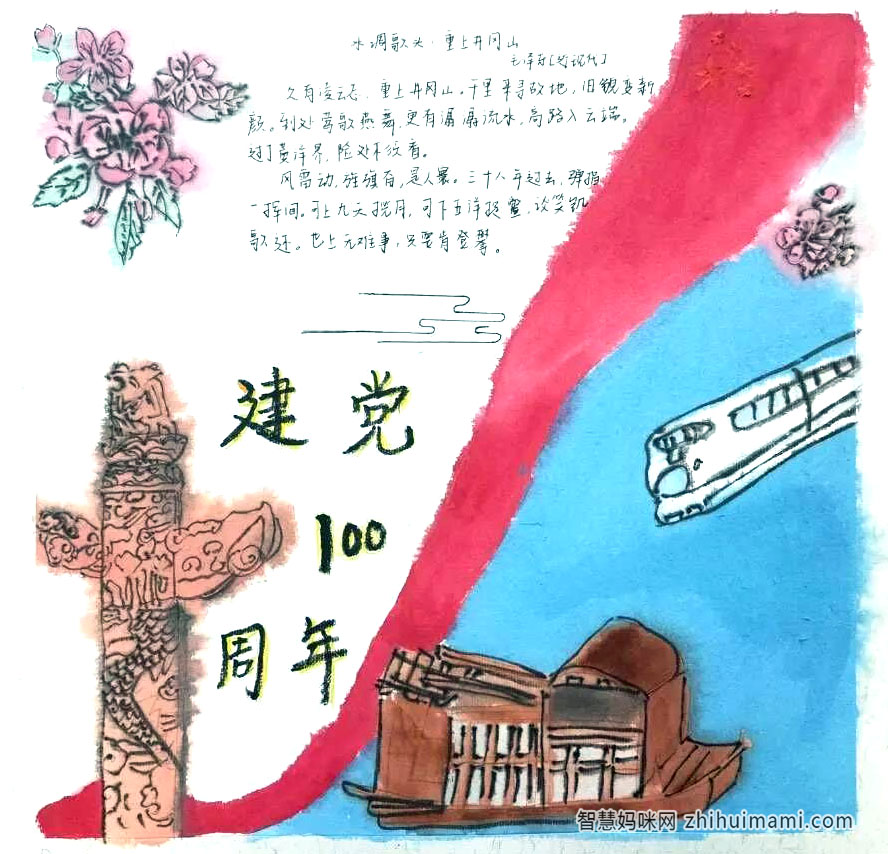 水调歌头·重上井冈山
毛泽东[近现代]
久有凌云志，重上井冈山。千里来寻故地，旧貌变新
颜。到处莺歌燕舞，更有潺潺流水，高路入云端。
过了黄洋界，险处不须看。
风雷动，旌旗奋，是人寰。三十八年过去，弹指
一挥间。可上九天揽月，可下五洋捉鳖，谈笑凯
歌还。世上无难事，只要肯登攀。
建党
100
周年
智慧妈咪网 zhihuimami.com